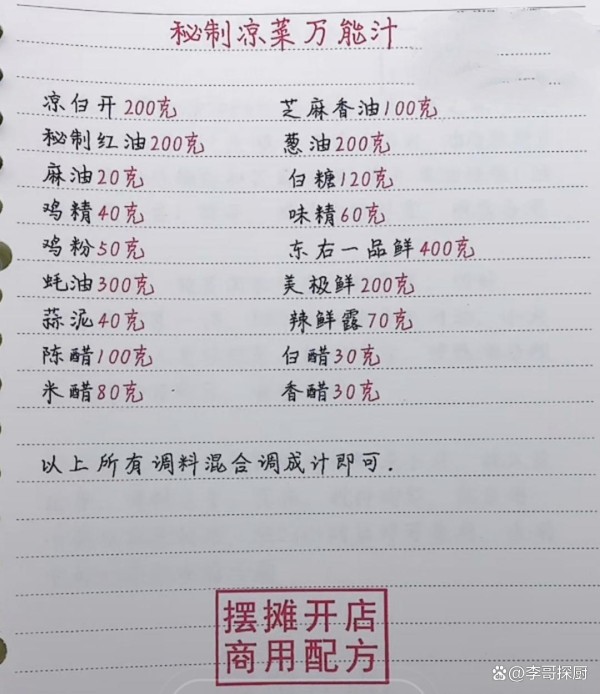 秘制凉菜万能汁
凉白开200克 芝麻香油100克
秘制红油200克 葱油200克
麻油20克 白糖120克
鸡精40克 味精60克
鸡粉50克 东右一品鲜400克
蚝油300克 美极鲜200克
蒜泥40克 辣鲜露70克
陈醋100克 白醋30克
米醋80克 香醋30克
以上所有调料混合调成计即可.
摆摊开店
商用配方
@李哥探厨